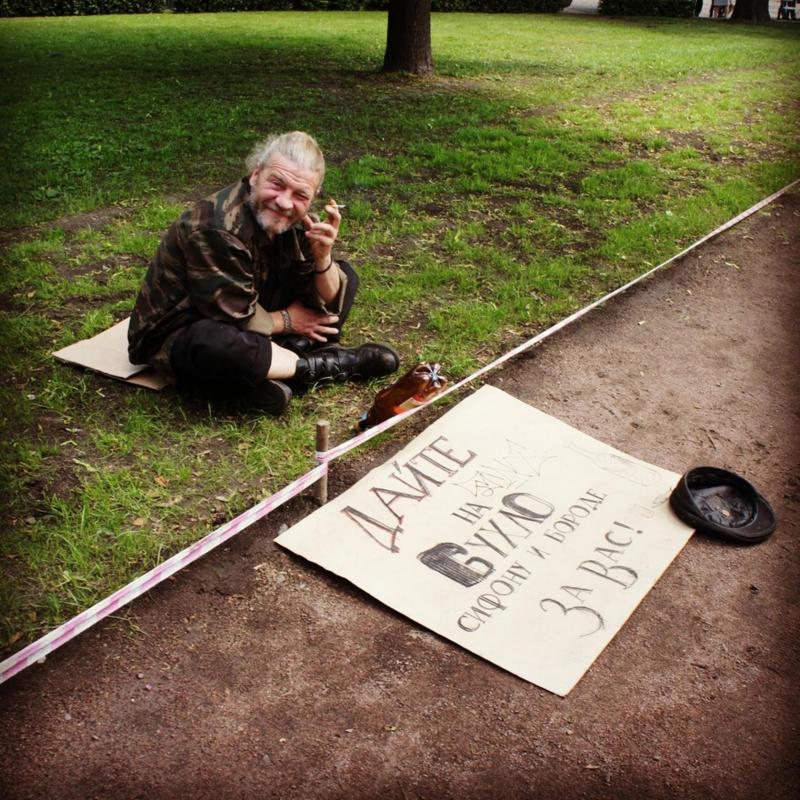 ДАЙТЕ
НА
БУХЛО
СИФОНУ И БОРОДЕ
ЗА ВАС!